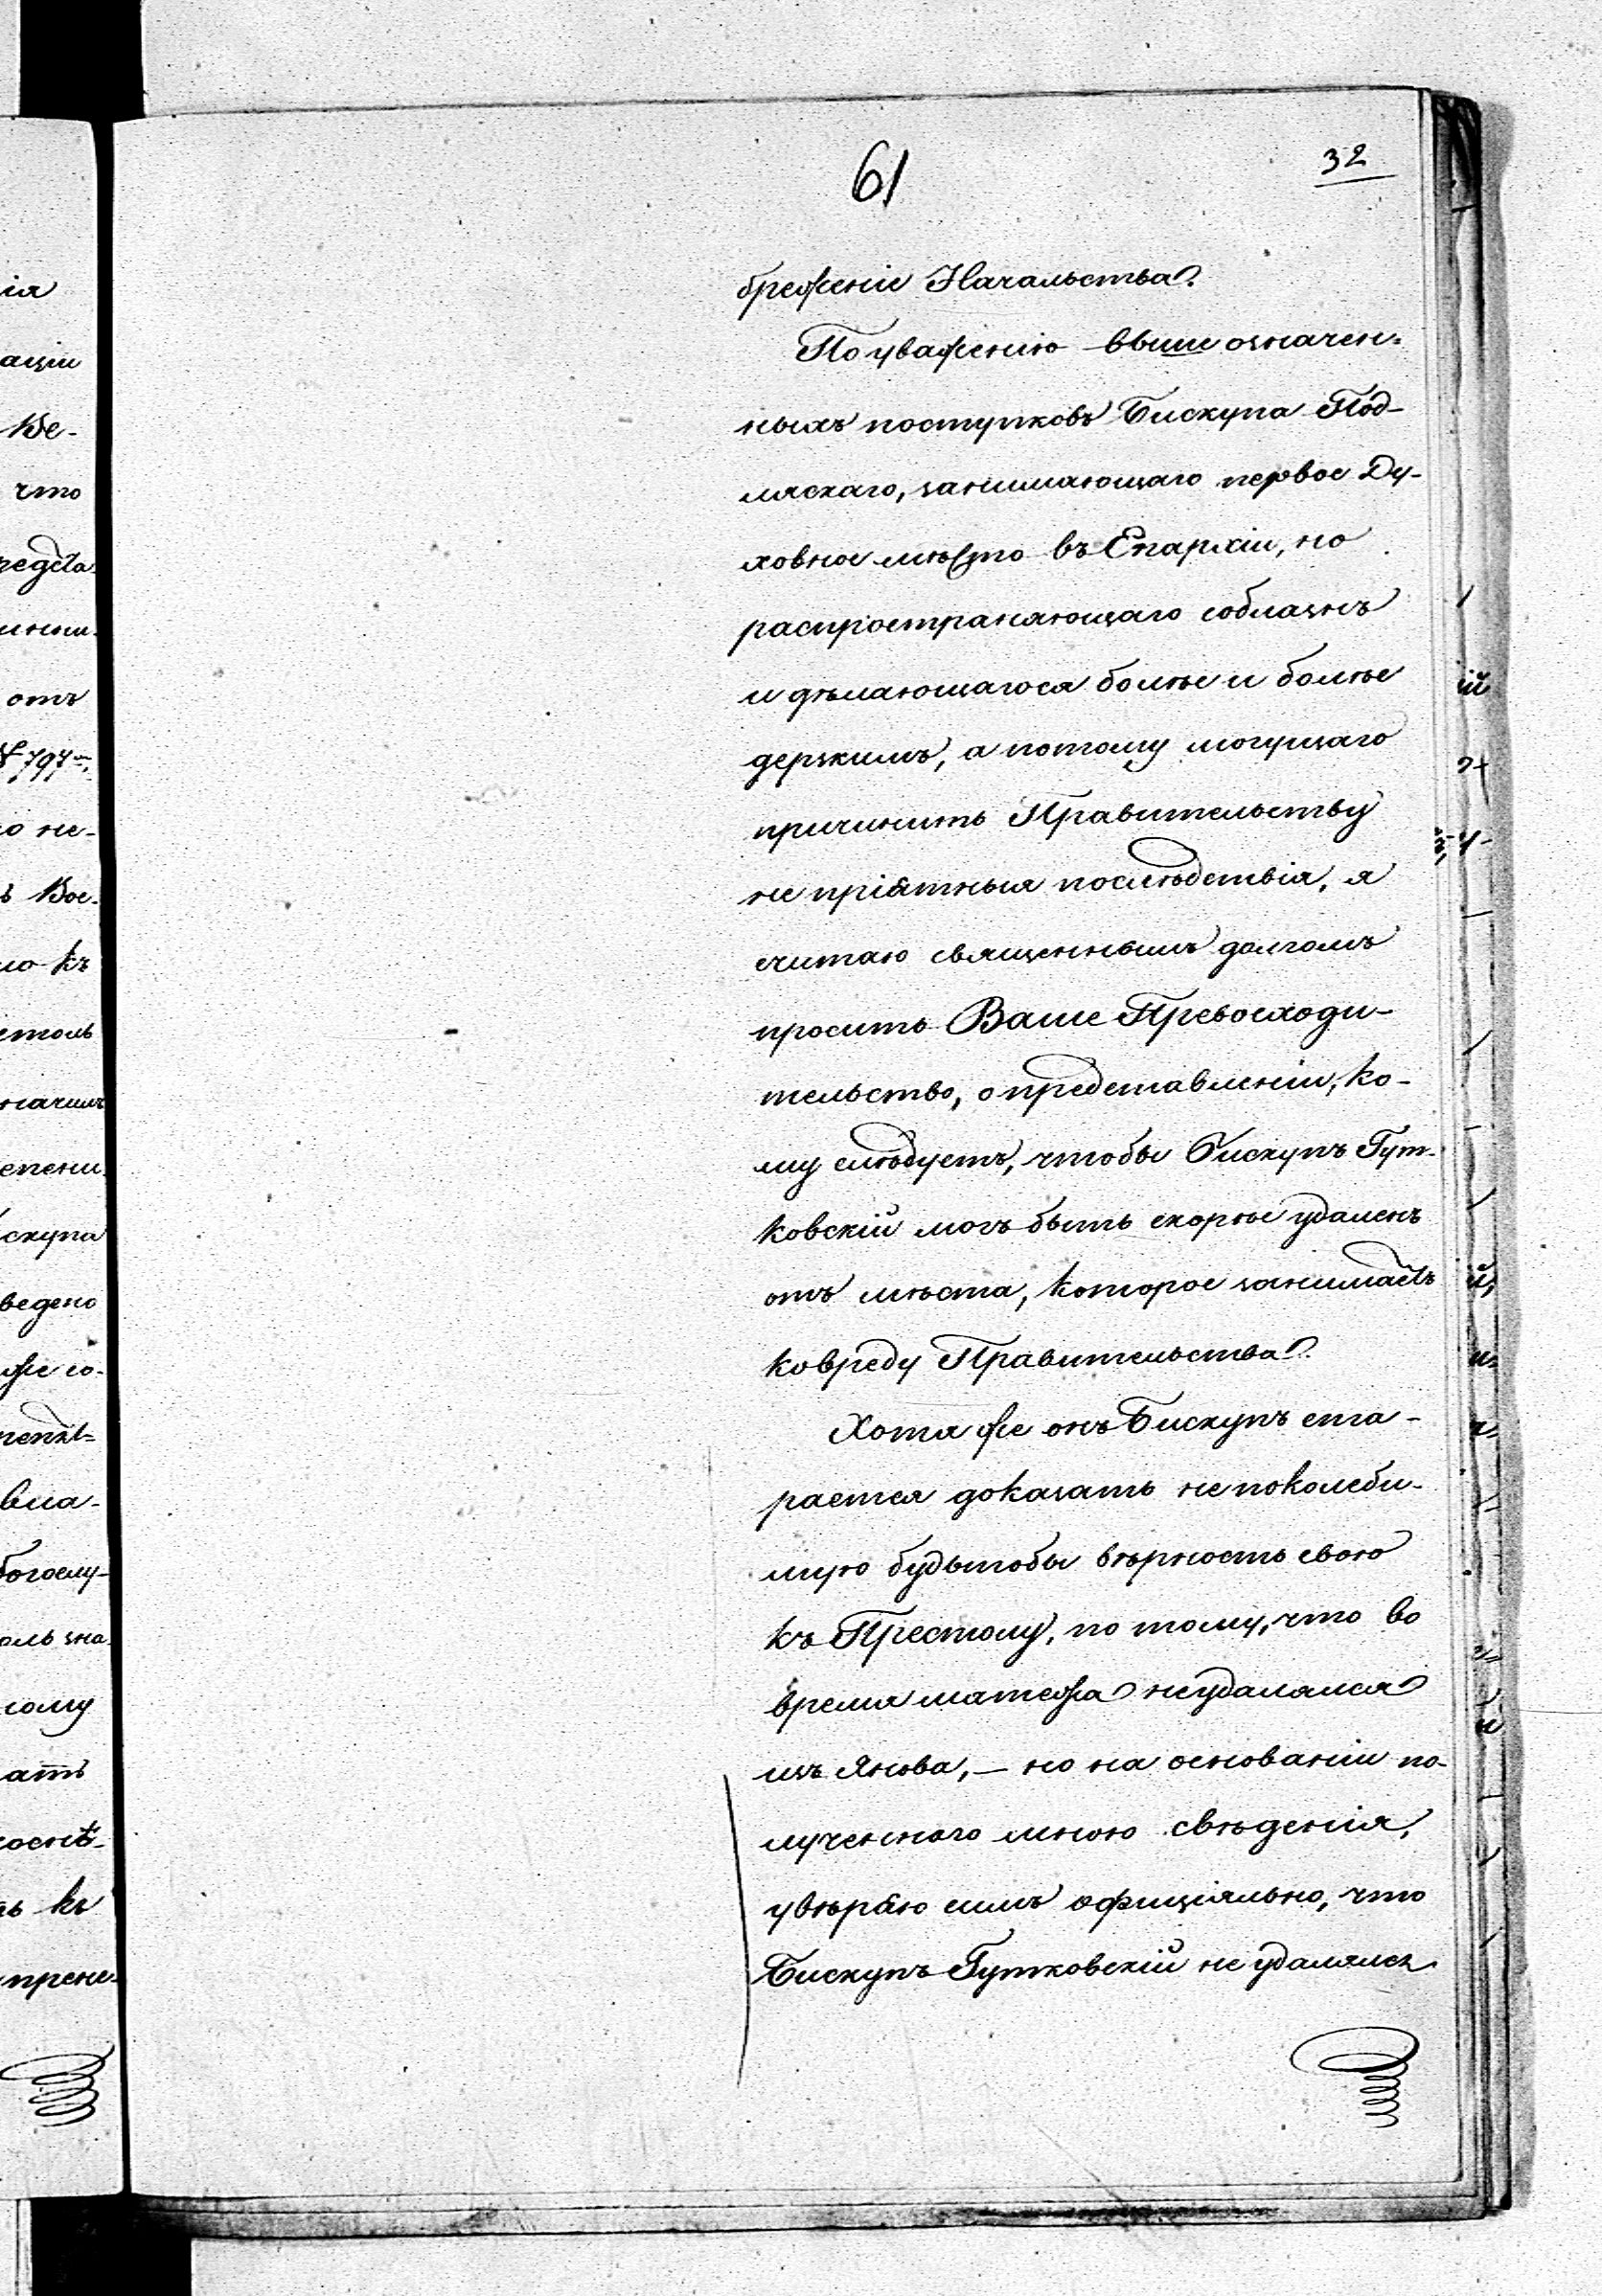 61
32
бреженіе Начальства.
По уваженію выше означен-
ныхъ поступковъ Бискупа Под-
ляскаго, занимающаго первое Ду-
ховное мѣсто въ Епархіи, но
распространяющаго соблазнъ
и дѣлающагося болѣе и болѣе
дерзкимъ, а потому могущаго
причинить Правительству
не пріятныя послѣдствія, я
считаю священнымъ долгомъ
просить Ваше Превосходи-
тельство, о представленіи, ко-
му слѣдуетъ, чтобы Бискупъ Гут-
ковскій могъ быть скорѣе удаленъ
отъ мѣста, которое занимаетъ
ко вреду Правительства.
Хотя же онъ Бискупъ ста-
рается доказать не поколеби-
мую будьтобы вѣрность свою
къ Престолу, по тому, что во
время мятежа неудалялся
изъ Янова, — но на основаніи по-
лученнаго мною свѣденія,
увѣряю симъ офиціяльно, что
Бискупъ Гутковскій не удалялся